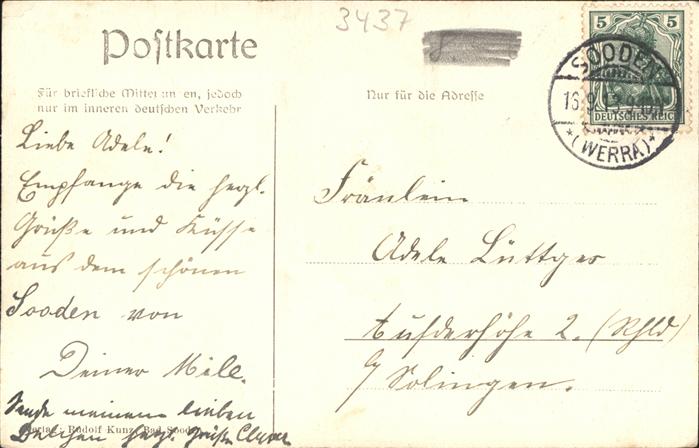 3437
Postkarte
Für briefliche Mitteilungen, jedoch
nur im inneren deutschen Verkehr
Nur für die Adresse
5 5
DEUTSCHES REICH
SOODEN
16.9.13
* (WERRA) *
Liebe Adele!
Empfange die herzl.
Grüße und Küsse
aus dem schönen
Sooden von
Deiner Mile.
Sende meinem lieben
herzl. Grüße
Verlag: Rudolf Kunz, Bad Sooden
Fräulein
Adele Lüttges
Aufderhöhe 2. (Rhld)
b/ Solingen.